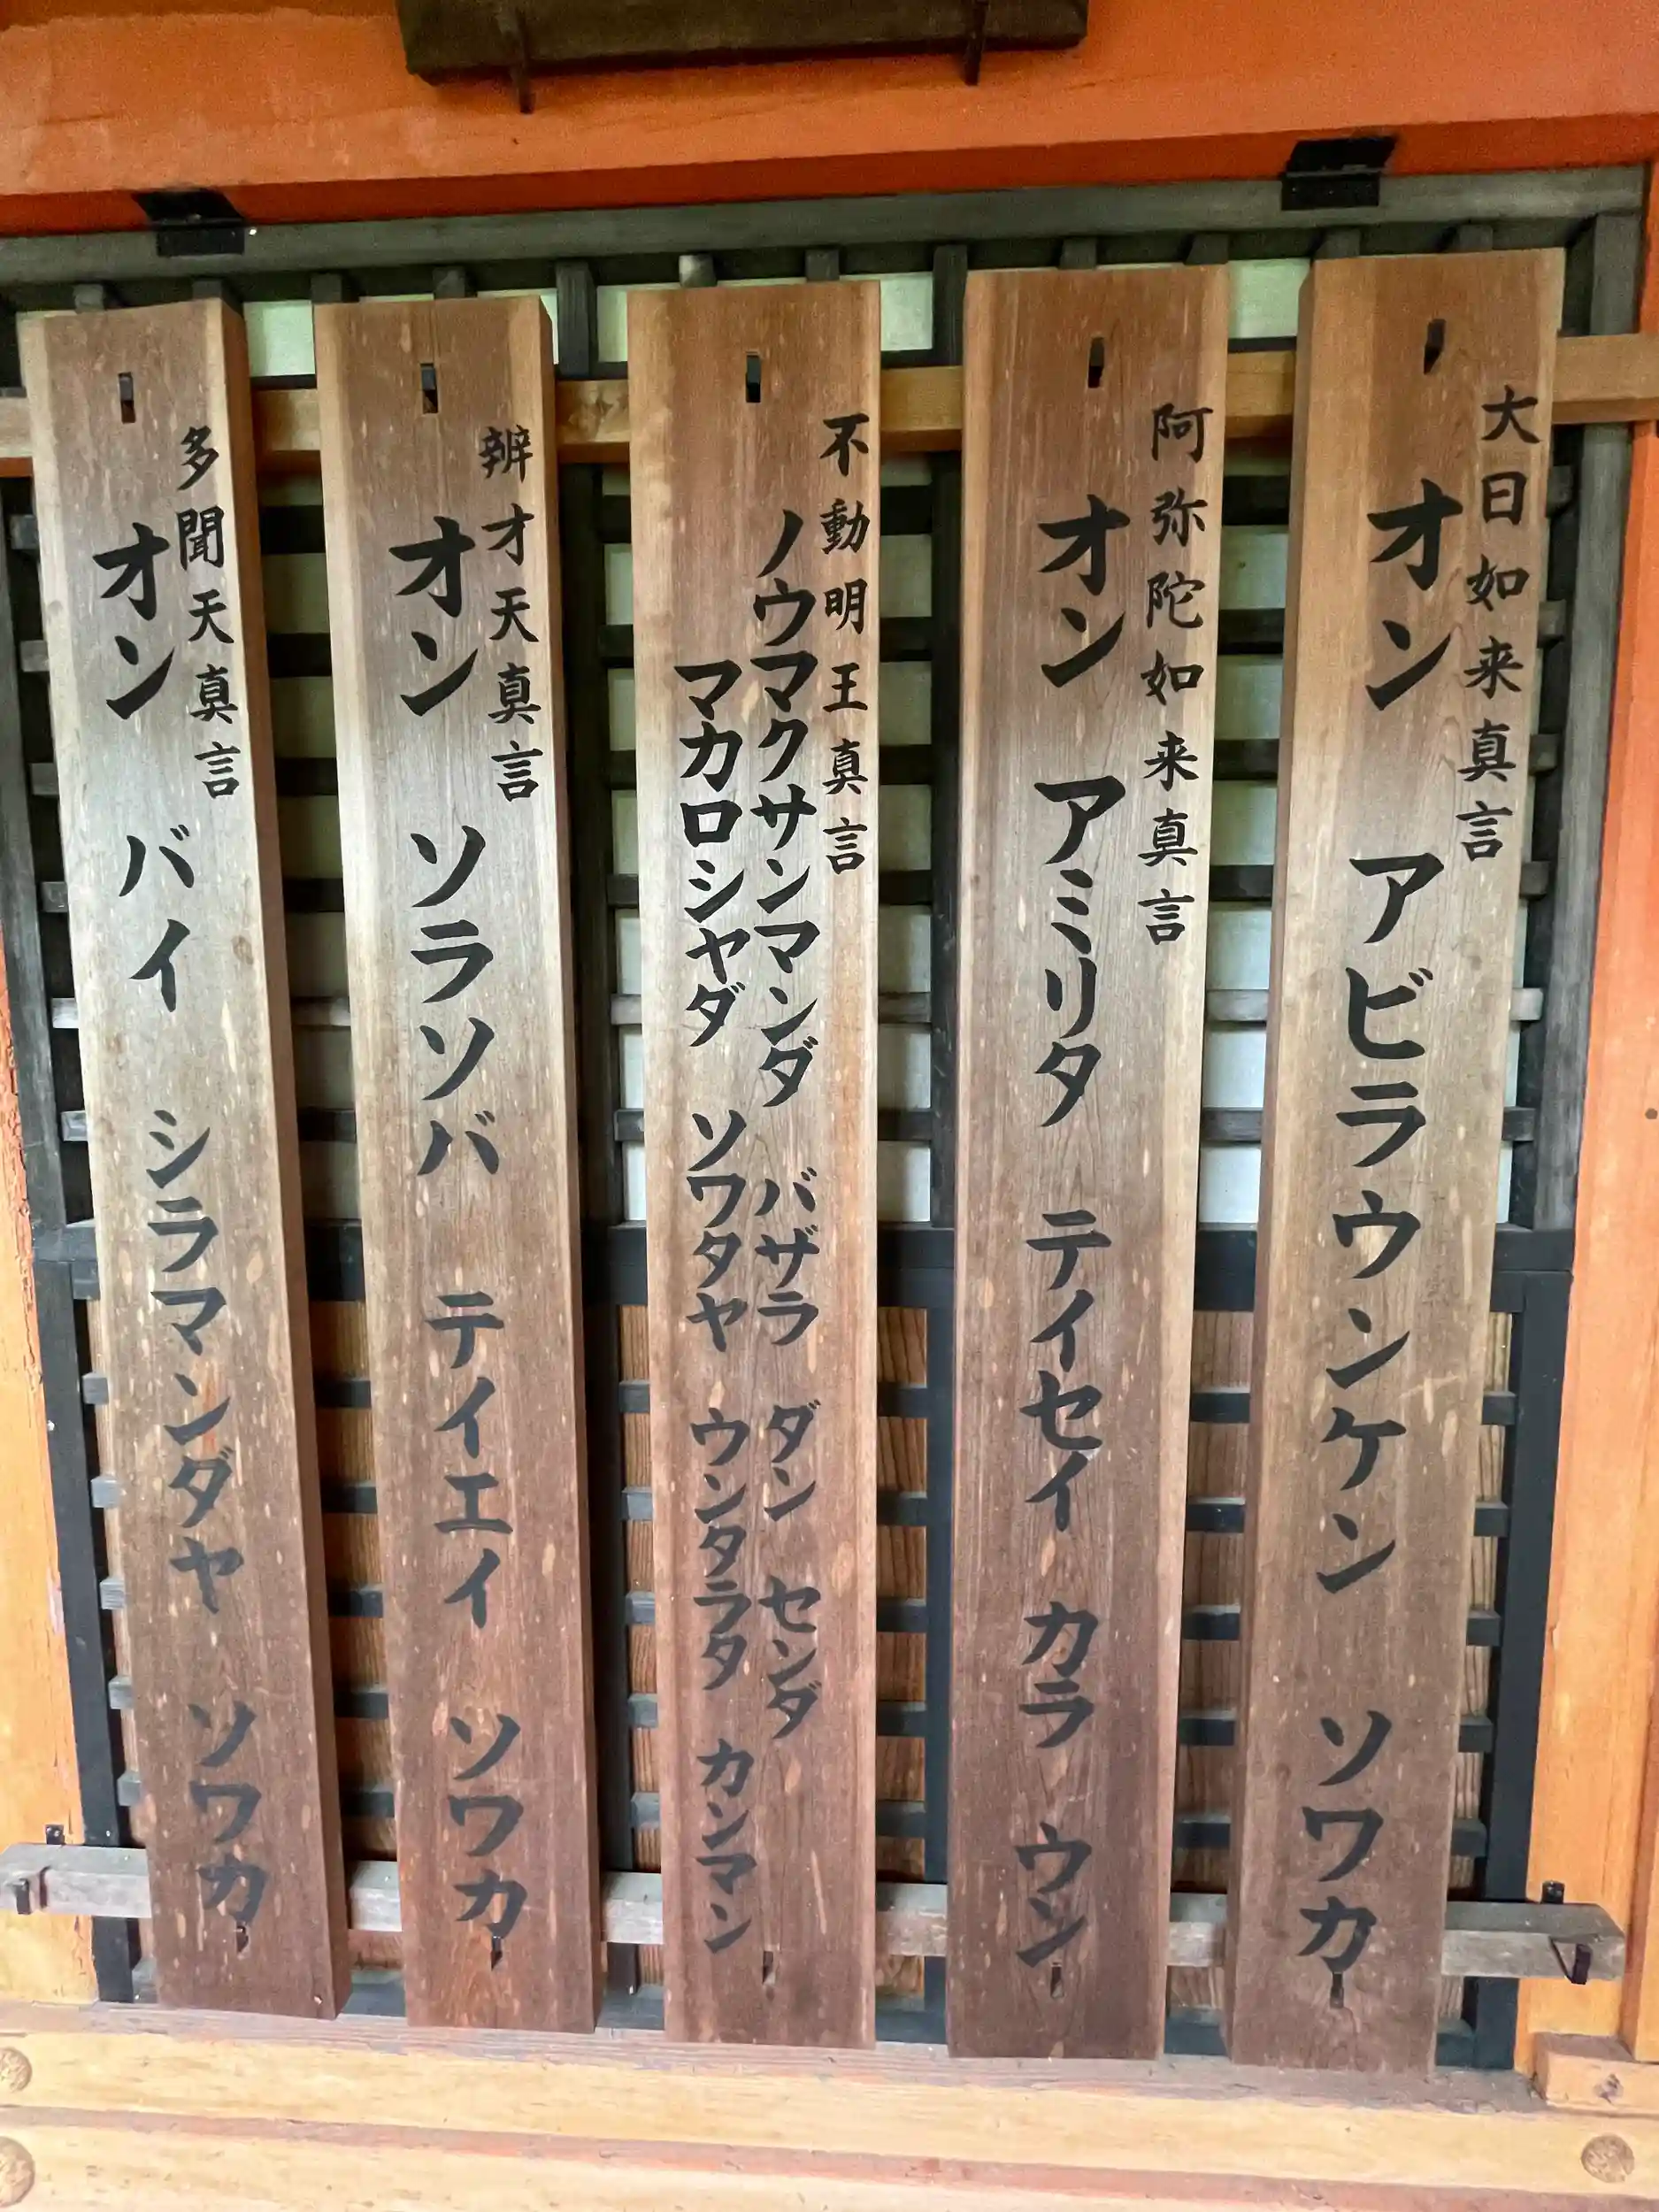 大日如来真言
オン アビラウンケン ソワカ
阿弥陀如来真言
オン アミリタ テイセイ カラ ウン
不動明王真言
ノウマクサンマンダ バザラ ダン センダ
マカロシヤダ ソワタヤ ウンタラタ カンマン
辨才天真言
オン ソラソバ テイエイ ソワカ
多聞天真言
オン バイ シラマンダヤ ソワカ